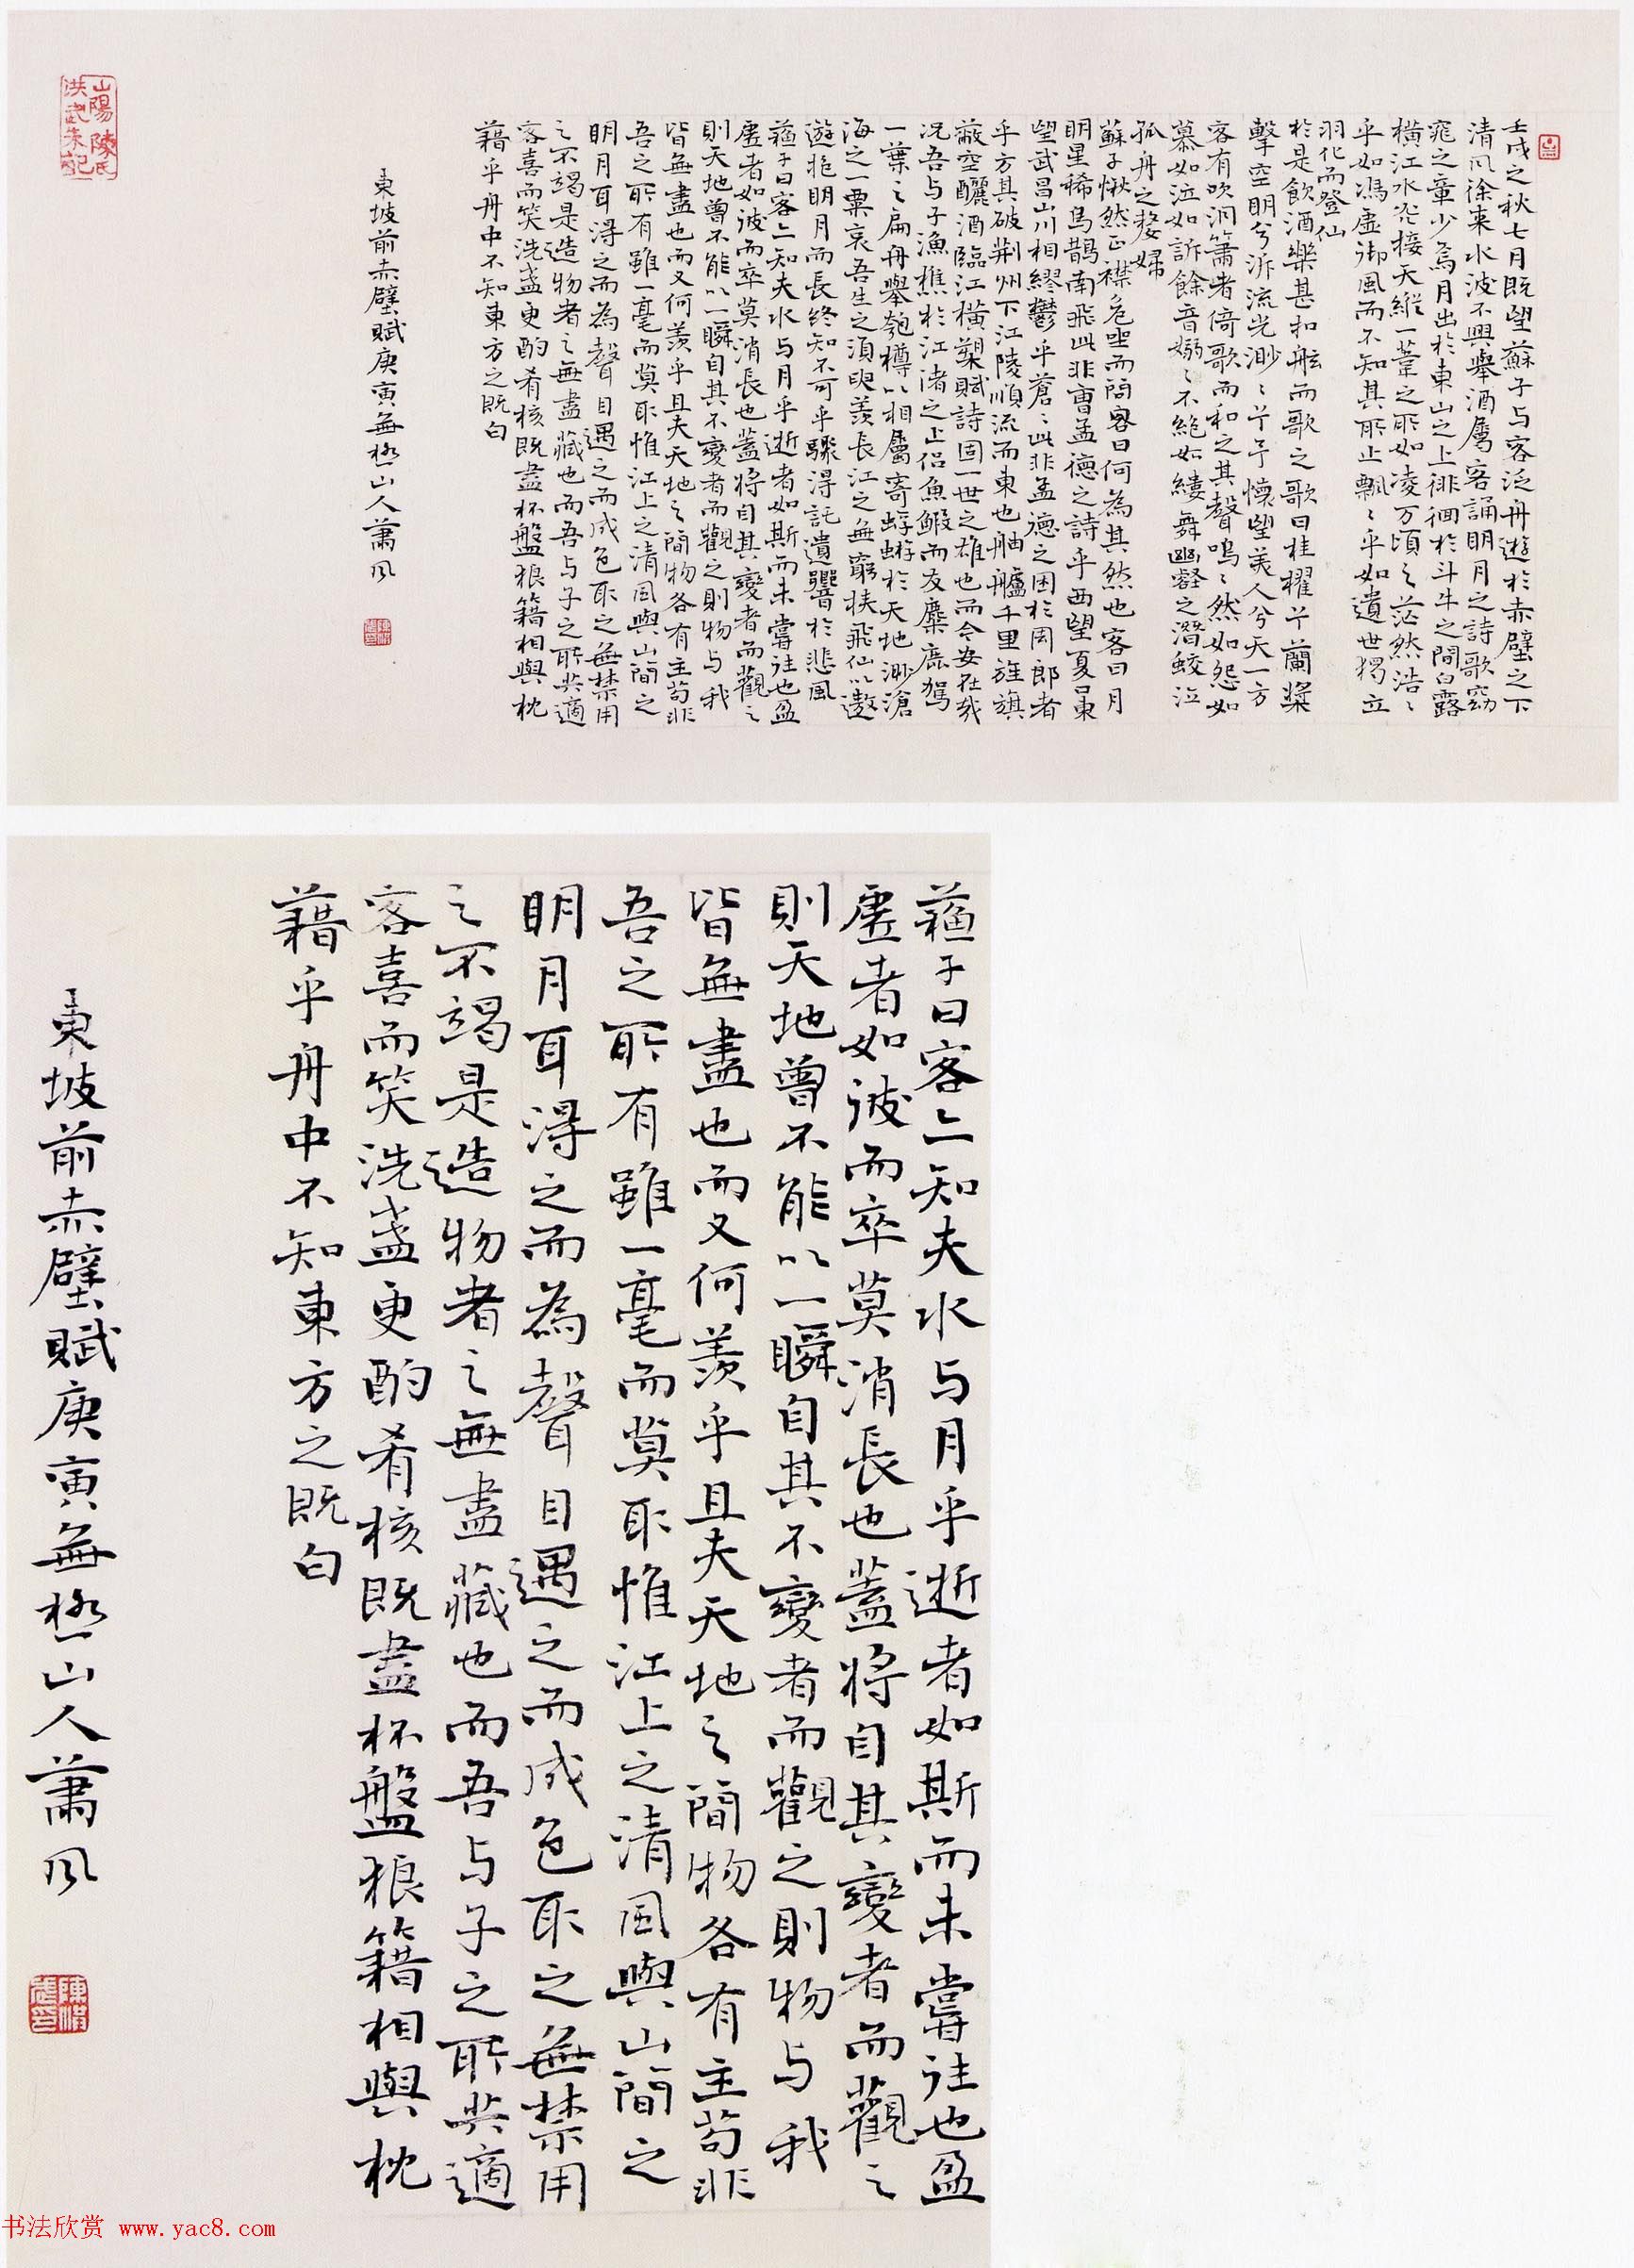 壬戌之秋七月既望蘇子与客泛舟遊於赤壁之下
清风徐来水波不興舉酒屬客誦明月之詩歌窈
窕之章少焉月出於東山之上徘徊於斗牛之間白露
横江水光接天縱一葦之所如凌万頃之茫然浩〻
乎如馮虚御風而不知其所止飄〻乎如遺世獨立
羽化而登仙
於是飲酒樂甚扣舷而歌之歌曰桂櫂兮蘭槳
擊空明兮泝流光渺〻兮予懷望美人兮天一方
客有吹洞簫者倚歌而和之其聲嗚〻然如怨如
慕如泣如訴餘音嫋〻不絶如縷舞幽壑之潛蛟泣
孤舟之嫠婦
蘇子愀然正襟危坐而問客曰何為其然也客曰月
明星稀烏鵲南飛此非曹孟德之詩乎西望夏口東
望武昌山川相繆鬱乎蒼〻此非孟德之困於周郎者
乎方其破荆州下江陵順流而東也舳艫千里旌旗
蔽空釃酒臨江横槊賦詩固一世之雄也而今安在哉
况吾与子漁樵於江渚之上侣魚鰕而友麋鹿駕
一葉之扁舟舉匏樽以相屬寄蜉蝣於天地渺滄
海之一粟哀吾生之須臾羡長江之無窮挾飛仙以遨
遊抱明月而長終知不可乎驟得託遺響於悲風
蘓子曰客亦知夫水与月乎逝者如斯而未嘗往也盈
虚者如彼而卒莫消長也蓋将自其變者而觀之
則天地曾不能以一瞬自其不變者而觀之則物与我
皆無盡也而又何羡乎且夫天地之間物各有主苟非
吾之所有雖一毫而莫取惟江上之清風與山間之
明月耳得之而為聲目遇之而成色取之無禁用
之不竭是造物者之無盡藏也而吾与子之所共適
客喜而笑洗盞更酌肴核既盡杯盤狼籍相與枕
藉乎舟中不知東方之既白
東坡前赤壁賦庚寅無極山人蕭风
山陽陳氏
洪武朱記
陳洪
武印
蘓子曰客亦知夫水与月乎逝者如斯而未嘗往也盈
虚者如彼而卒莫消長也蓋将自其變者而觀之
則天地曾不能以一瞬自其不變者而觀之則物与我
皆無盡也而又何羡乎且夫天地之間物各有主苟非
吾之所有雖一毫而莫取惟江上之清風與山間之
明月耳得之而為聲目遇之而成色取之無禁用
之不竭是造物者之無盡藏也而吾与子之所共適
客喜而笑洗盞更酌肴核既盡杯盤狼籍相與枕
藉乎舟中不知東方之既白
東坡前赤壁賦庚寅無極山人蕭风
陳洪
武印
书法欣赏 www.yac8.com